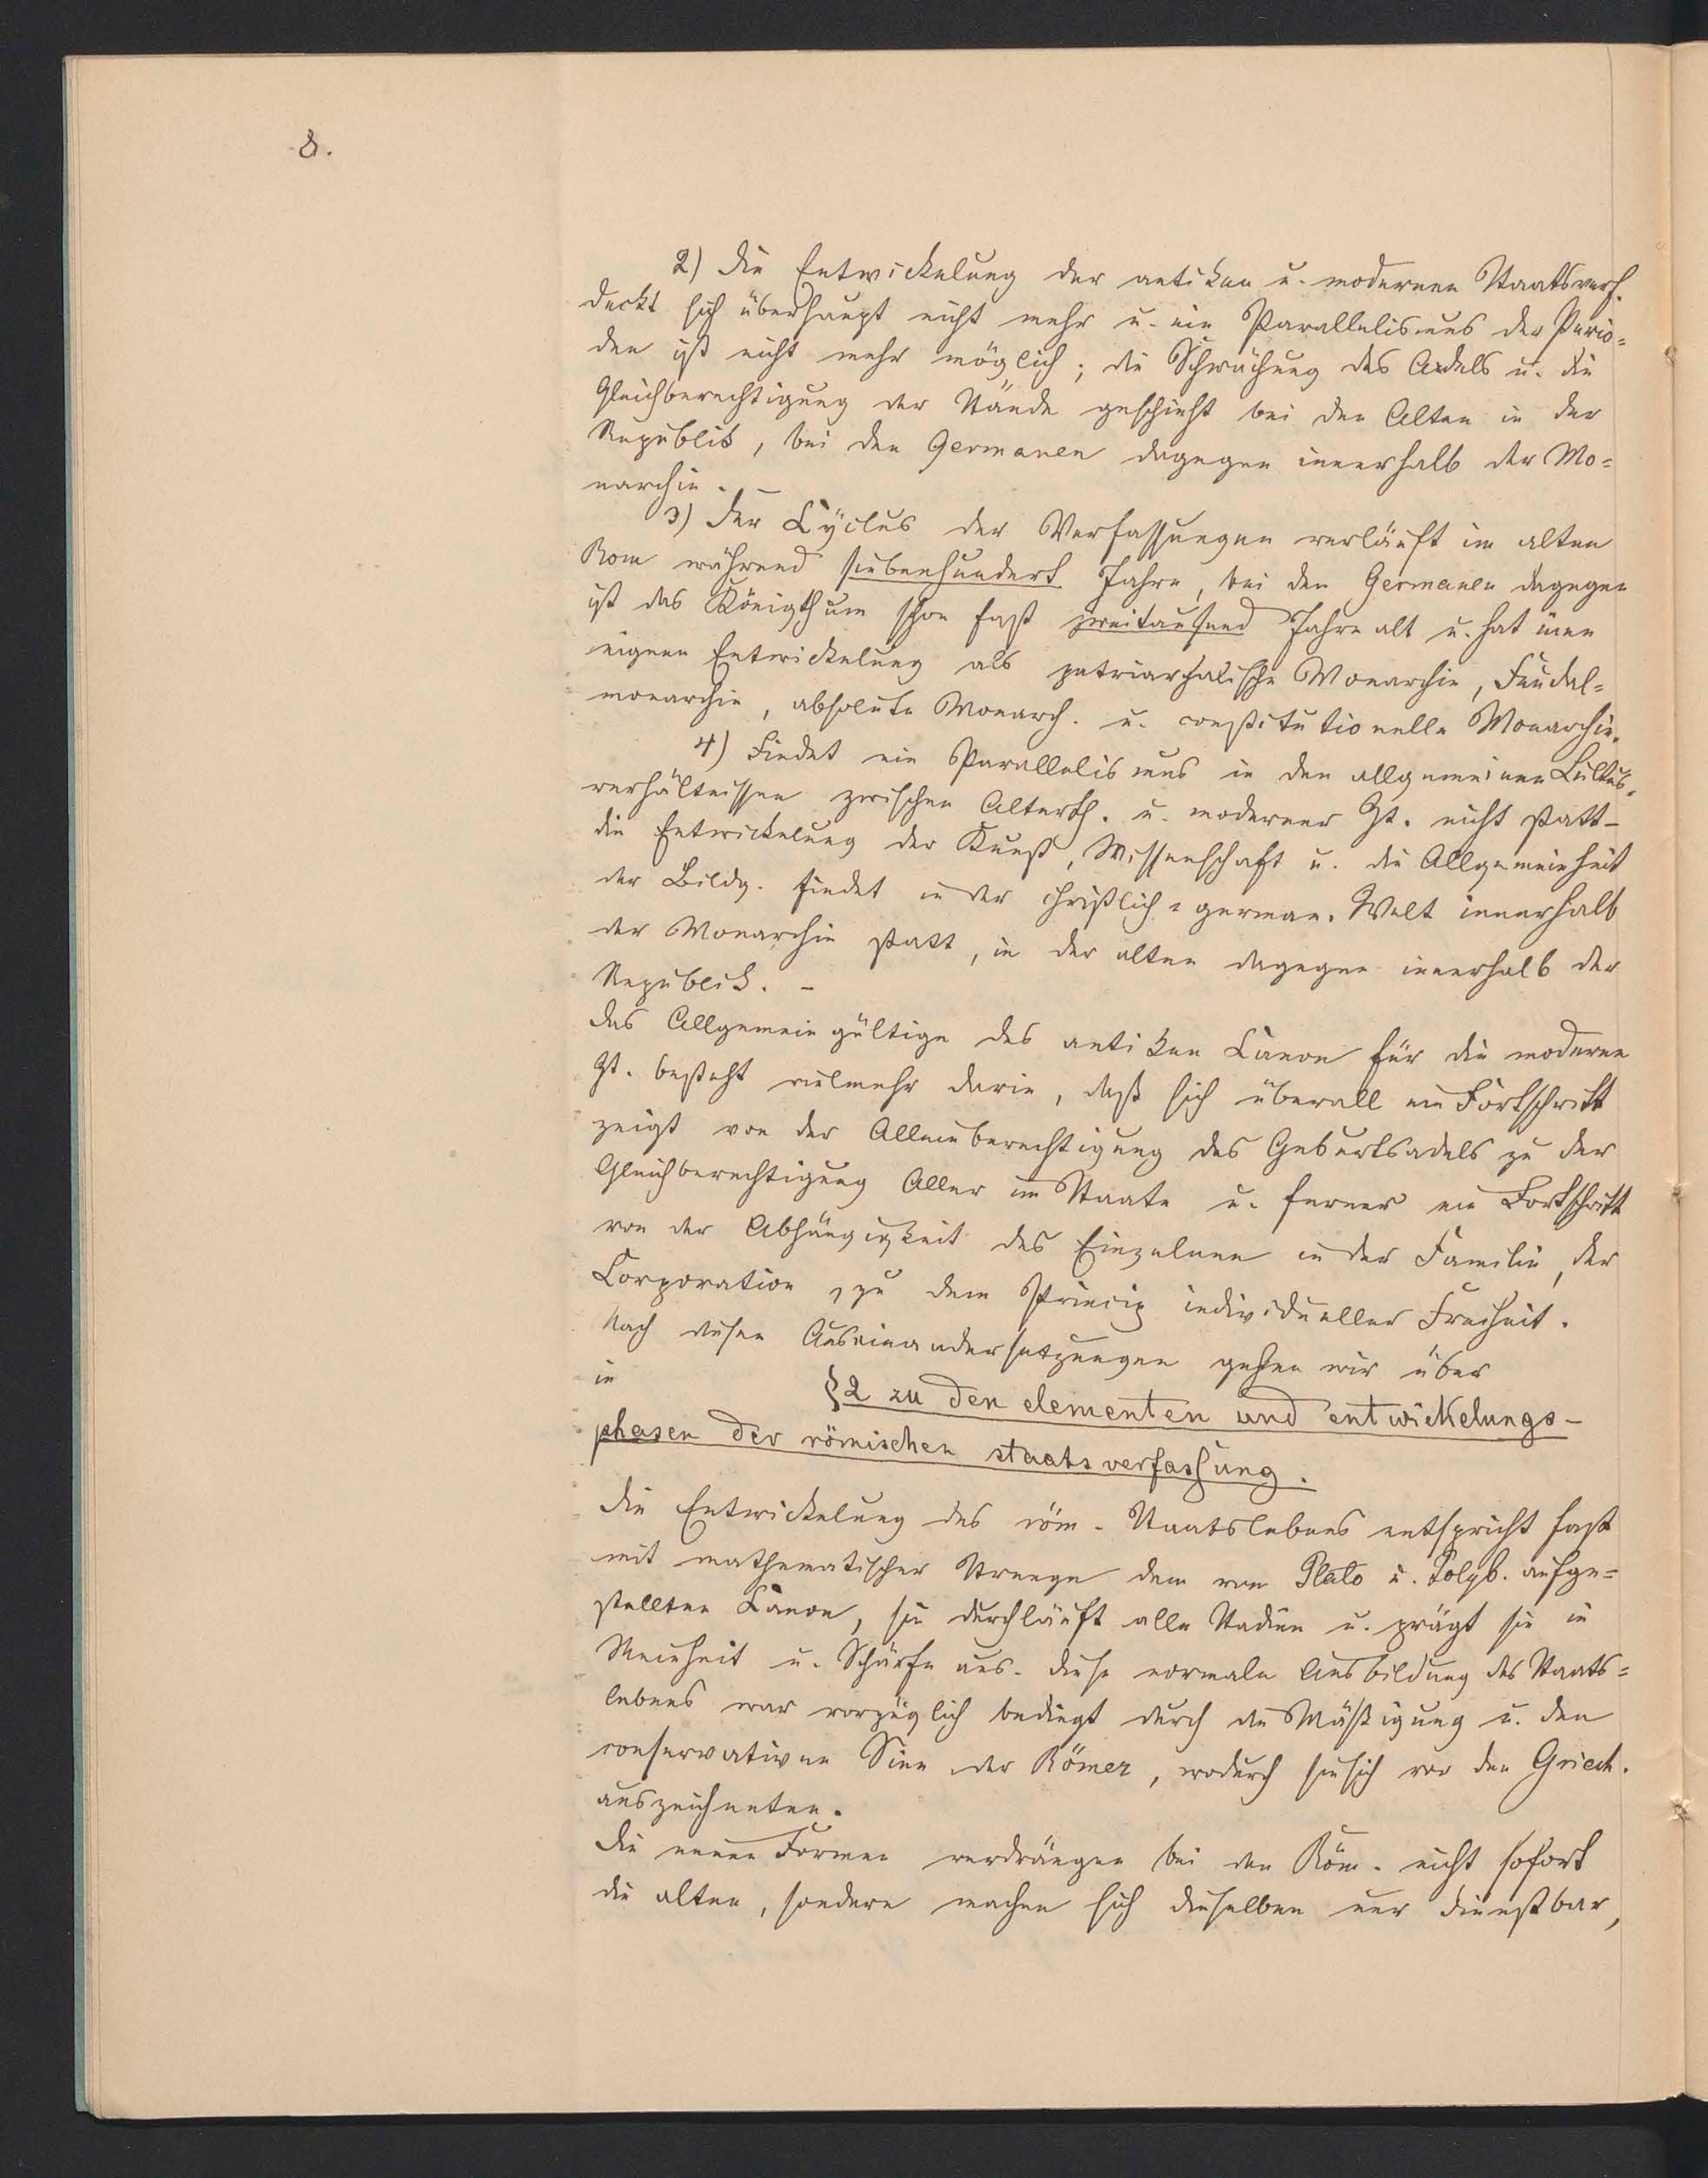 8.
2) Die Entwickelung der antiken u. modernen Staatsverf.
deckt sich überhaupt nicht mehr u. ein Parallelismus der Perio=
den ist nicht mehr möglich; die Schwächung des Adels u. die
Gleichberechtigung der Stände geschieht bei den Alten in der
Republik, bei den Germanen dagegen innerhalb der Mo=
narchie. –
3) Der Cyclus der Verfassungen verläuft im alten
Rom während siebenhundert Jahre, bei den Germanen dagegen
ist das Königthum schon fast zweitausend Jahre alt u. hat eine
eigene Entwickelung als patriarchalische Monarchie, Feudal=
monarchie, absolute Monarch. u. constitutionelle Monarchie.
4) Findet ein Parallelismus in den allgemeinen Cultur-
verhältnissen zwischen Alterth. u. moderner Zt. nicht statt –
die Entwickelung der Kunst, Wissenschaft u. die Allgemeinheit
der Bildg. findet in der christlich=german. Welt innerhalb
der Monarchie statt, in der alten dagegen innerhalb der
Republik. –
Das Allgemeingültige des antiken Canon für die moderne
Zt. besteht vielmehr darin, daß sich überall ein Fortschritt
zeigt von der Alleinberechtigung des Geburtsadels zu der
Gleichberechtigung Aller im Staate u. ferner ein Fortschritt
von der Abhängigkeit des Einzelnen in der Familie, der
Corporation, zu dem Princip individueller Freiheit.
Nach diesen Auseinandersetzungen gehen wir über
in
§ 2 zu den elementen und entwickelungs-
phasen der römischen staatsverfassung.
Die Entwickelung des röm. Staatslebens entspricht fast
mit mathematischer Strenge dem von Plato u. Polyb. aufge=
stellten Canon, sie durchläuft alle Stadien u. prägt sie in
Reinheit u. Schärfe aus. Diese normale Ausbildung des Staats=
lebens war vorzüglich bedingt durch die Mäßigung u. den
conservativen Sinn der Römer, wodurch sie sich vor den Griech.
auszeichneten.
Die neuen Formen verdrängen bei den Röm. nicht sofort
die alten, sondern machen sich dieselben nur dienstbar,